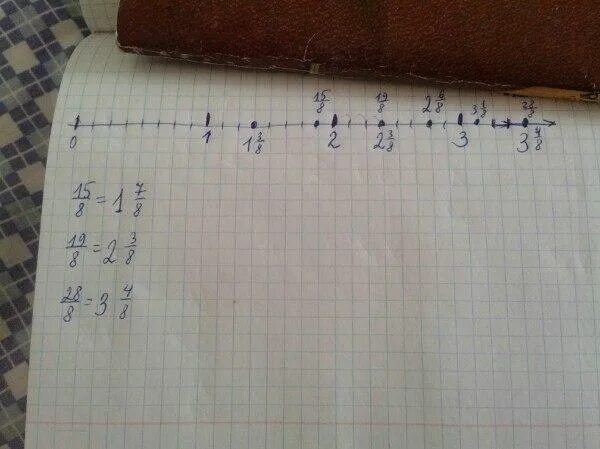 15/8 19/8 2 6/8 3 1/8 28/8
0 1 1 3/8 2 2 3/8 3 3 4/8
15/8 = 1 7/8
19/8 = 2 3/8
28/8 = 3 4/8